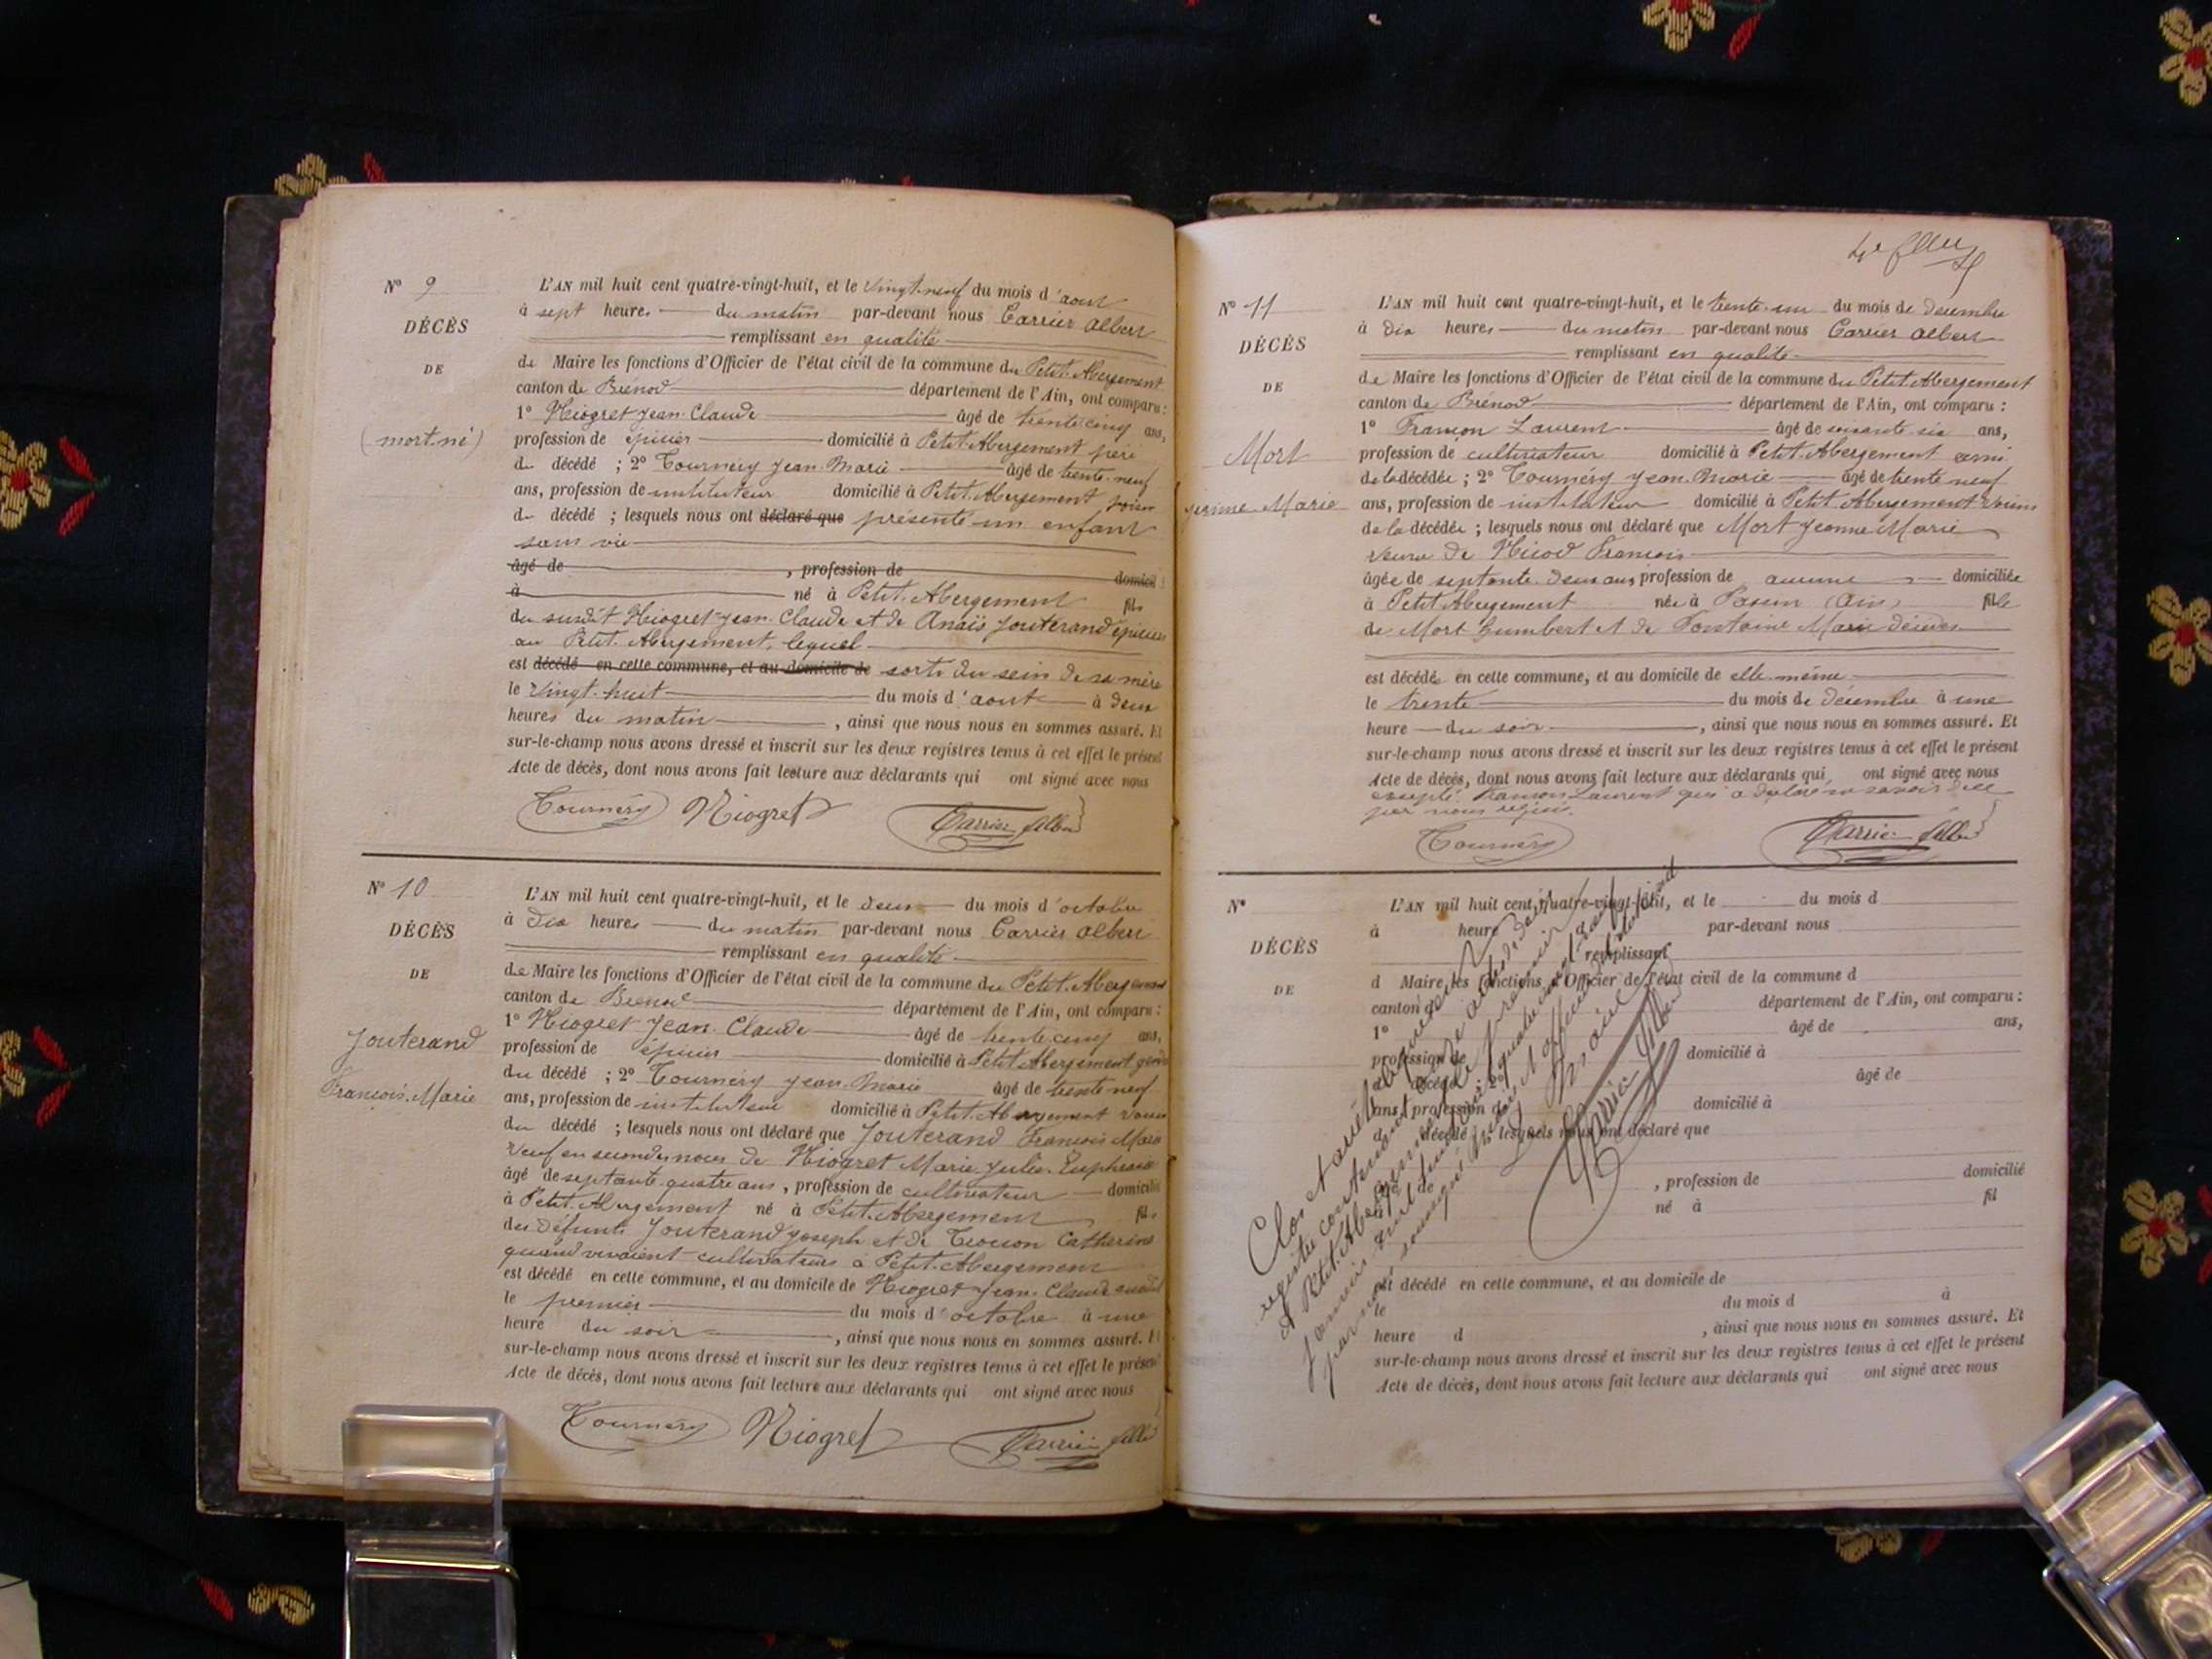 N° 9
DÉCÈS
DE
(mort-né)
L'AN mil huit cent quatre-vingt-huit, et le vingt-neuf du mois d'aout
à sept heures du matin par-devant nous Carrier Albert
remplissant en qualité
de Maire les fonctions d'Officier de l'état civil de la commune du Petit-Abergement
canton de Brénod département de l'Ain, ont comparu :
1° Niogret Jean-Claude âgé de trente-cinq ans,
profession de épicier domicilié à Petit-Abergement père
du décédé ; 2° Tournéry Jean-Marie âgé de trente-neuf
ans, profession de instituteur domicilié à Petit-Abergement voisin
du décédé ; lesquels nous ont déclaré que présenté un enfant
sans vie
âgé de , profession de domicil
à né à Petit-Abergement fils
du susdit Niogret Jean-Claude et de Anaïs Jouterand épiciers
au Petit-Abergement, lequel
est décédé en cette commune, et au domicile de sorti du sein de sa mère
le vingt-huit du mois d'aout à deux
heures du matin , ainsi que nous nous en sommes assuré. Et
sur-le-champ nous avons dressé et inscrit sur les deux registres tenus à cet effet le présent
Acte de décès, dont nous avons fait lecture aux déclarants qui ont signé avec nous
Tournéry Niogret Carrier Albert
N° 10
DÉCÈS
DE
Jouterand
François-Marie
L'AN mil huit cent quatre-vingt-huit, et le deux du mois d'octobre
à dix heures du matin par-devant nous Carrier Albert
remplissant en qualité
de Maire les fonctions d'Officier de l'état civil de la commune du Petit-Abergement
canton de Brénod département de l'Ain, ont comparu :
1° Niogret Jean-Claude âgé de trente-cinq ans,
profession de épicier domicilié à Petit-Abergement gendre
du décédé ; 2° Tournéry Jean-Marie âgé de trente-neuf
ans, profession de instituteur domicilié à Petit-Abergement voisin
du décédé ; lesquels nous ont déclaré que Jouterand François-Marie
veuf en secondes noces de Niogret Marie-Julie-Euphrasie
âgé de septante-quatre ans, profession de cultivateur domicilié
à Petit-Abergement né à Petit-Abergement fils
des défunts Jouterand Joseph et de Catherine
quand vivaient cultivateurs à Petit-Abergement
est décédé en cette commune, et au domicile de Niogret Jean-Claude susdit
le premier du mois d'octobre à une
heure du soir , ainsi que nous nous en sommes assuré. Et
sur-le-champ nous avons dressé et inscrit sur les deux registres tenus à cet effet le présent
Acte de décès, dont nous avons fait lecture aux déclarants qui ont signé avec nous
Tournéry Niogret Carrier Albert
N° 11
DÉCÈS
DE
Mort
Jeanne-Marie
L'AN mil huit cent quatre-vingt-huit, et le trente-un du mois de décembre
à dix heures du matin par-devant nous Carrier Albert
remplissant en qualité
de Maire les fonctions d'Officier de l'état civil de la commune du Petit-Abergement
canton de Brénod département de l'Ain, ont comparu :
1° Françon Laurent âgé de soixante-six ans,
profession de cultivateur domicilié à Petit-Abergement ami
de la décédée ; 2° Tournéry Jean-Marie âgé de trente-neuf
ans, profession de instituteur domicilié à Petit-Abergement voisin
de la décédée ; lesquels nous ont déclaré que Mort Jeanne-Marie
veuve de Nicod François
âgée de septante-deux ans profession de aucune domiciliée
à Petit-Abergement née à Passin (Ain) fille
de Mort Humbert et de Fontaine Marie décédés
est décédée en cette commune, et au domicile de elle-même
le trente du mois de décembre à une
heure du soir , ainsi que nous nous en sommes assuré. Et
sur-le-champ nous avons dressé et inscrit sur les deux registres tenus à cet effet le présent
Acte de décès, dont nous avons fait lecture aux déclarants qui ont signé avec nous
excepté Françon Laurent qui a déclaré ne savoir de ce
par nous requis.
Tournéry Carrier Albert
N°
DÉCÈS
DE
L'AN mil huit cent quatre-vingt-huit, et le du mois d
à heure par-devant nous
remplissant
d Maire les fonctions d'Officier de l'état civil de la commune d
canton d département de l'Ain, ont comparu :
1° âgé de ans,
profession de domicilié à
d décédé ; 2° âgé de
ans, profession de domicilié à
d décédé ; lesquels nous ont déclaré que
âgé de , profession de domicilié
à né à fil
est décédé en cette commune, et au domicile de
le du mois d à
heure d , ainsi que nous nous en sommes assuré. Et
sur-le-champ nous avons dressé et inscrit sur les deux registres tenus à cet effet le présent
Acte de décès, dont nous avons fait lecture aux déclarants qui ont signé avec nous
Clos et arrêté le présent
registre contenant onze actes de décès
à Petit-Abergement le premier
janvier mil huit cent quatre-vingt-neuf
par nous soussigné Maire et officier de l'état civil
Le Maire
Carrier Albert